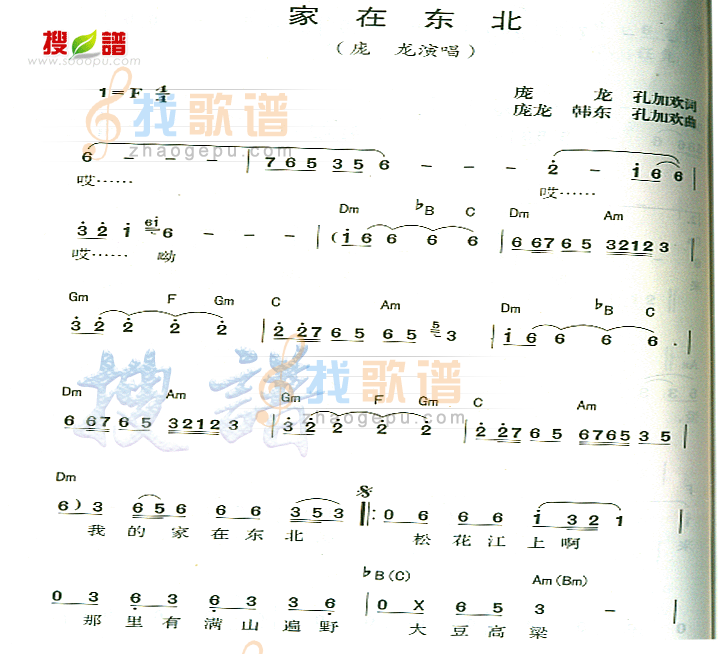 家 在 东 北
搜谱
www.sooopu.com
（庞 龙演唱）
1=F 4/4
庞 龙 孔加欢词
庞龙 韩东 孔加欢曲
找歌谱
zhaogepu.com
6 – – – | 7 6 5 3 5 6 – – – 2 – i 6 6 |
哎…… 哎……
Dm ♭B C Dm Am
3 2 i 6i 6 – – – | (i 6 6 6 6 | 6 6 7 6 5 3 2 1 2 3 |
哎…… 呦
Gm F Gm C Am Dm ♭B C
3 2 2 2 2 | 2 2 7 6 5 6 5 5 3 | i 6 6 6 6 |
找歌谱
zhaogepu.com
搜谱
Dm Am Gm F Gm C Am
6 6 7 6 5 3 2 1 2 3 | 3 2 2 2 2 | 2 2 7 6 5 6 7 6 5 3 5 |
Dm
6 ) 3 6 5 6 6 6 3 5 3 |: 0 6 6 6 i 3 2 1 |
我 的 家 在 东 北 松 花 江 上 啊
♭B (C) Am (Bm)
0 3 6 3 6 3 3 6 | 0 X 6 5 3 – |
那 里 有 满 山 遍 野 大 豆 高 粱
找歌谱